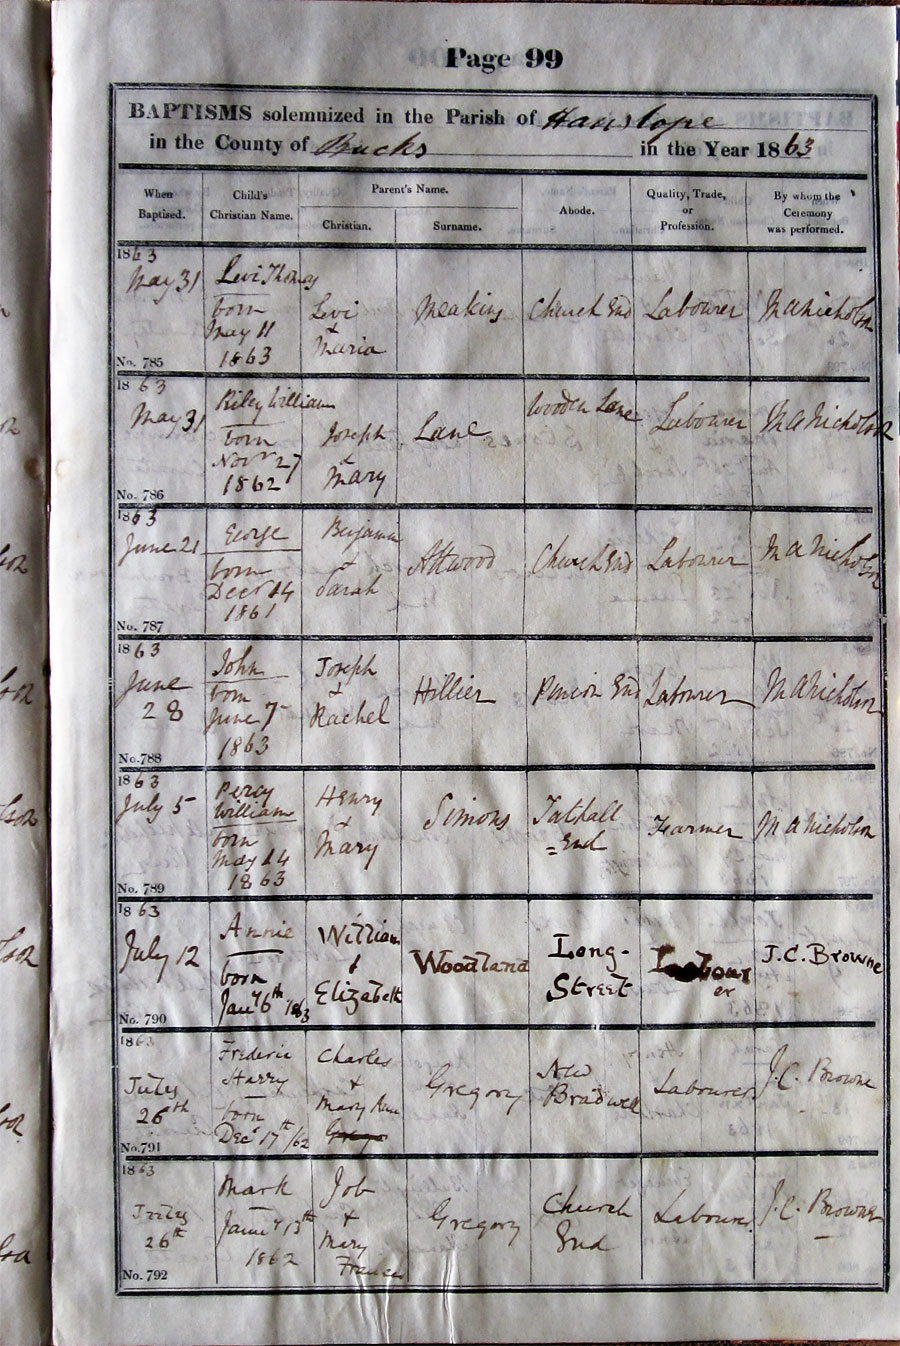 Page 99
BAPTISMS solemnized in the Parish of Hanslope
in the County of Bucks in the Year 1863
When Baptised.
Child's Christian Name.
Parent's Name.
Christian.
Surname.
Abode.
Quality, Trade, or Profession.
By whom the Ceremony was performed.
1863
May 31
No. 785
Levi Thomas
born
May 11
1863
Levi
&
Maria
Meakins
Church End
Labourer
M A Nicholson
1863
May 31
No. 786
Riley William
born
Novr 27
1862
Joseph
&
Mary
Lane
Wooden Lane
Labourer
M A Nicholson
1863
June 21
No. 787
George
born
Decr 14
1861
Benjamin
&
Sarah
Attwood
Church End
Labourer
M A Nicholson
1863
June
28
No. 788
John
born
June 7
1863
Joseph
&
Rachel
Hillier
End
Labourer
M A Nicholson
1863
July 5
No. 789
Percy
William
born
May 14
1863
Henry
&
Mary
Simons
Tathall
=End
Farmer
M A Nicholson
1863
July 12
No. 790
Annie
born
Jany 6th 1863
William
&
Elizabeth
Woodland
Long-
Street
Labour
er
J. C. Browne
1863
July
26th
No. 791
Frederic
Harry
born
Decr 17th/62
Charles
&
Mary Ann
Gregory
New
Bradwell
Labourer
J. C. Browne
1863
July
26th
No. 792
Mark
Janry 13th
1862
Job
&
Mary
Frances
Gregory
Church
End
Labourer
J. C. Browne